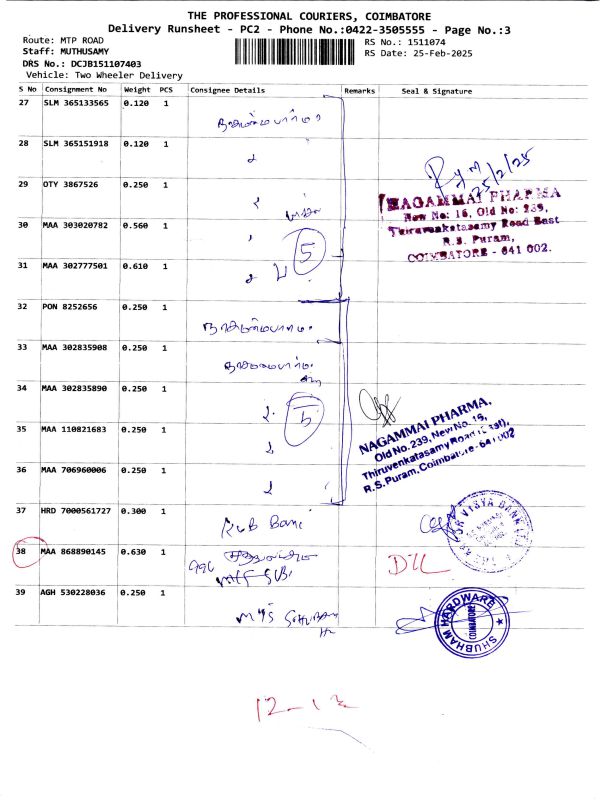 THE PROFESSIONAL COURIERS, COIMBATORE
Delivery Runsheet - PC2 - Phone No.:0422-3505555 - Page No.:3
Route: MTP ROAD
RS No.: 1511074
Staff: MUTHUSAMY
RS Date: 25-Feb-2025
DRS No.: DCJB151107403
Vehicle: Two Wheeler Delivery
S No Consignment No Weight PCS Consignee Details Remarks Seal & Signature
27 SLM 365133565 0.120 1
28 SLM 365151918 0.120 1
25/2/25
29 OTY 3867526 0.250 1
NAGAMMAI PHARMA
New No: 16, Old No: 239,
30 MAA 303020782 0.560 1
Thiruvenkatasamy Road East
5
R.S. Puram,
COIMBATORE - 641 002.
31 MAA 302777501 0.610 1
32 PON 8252656 0.250 1
33 MAA 302835908 0.250 1
34 MAA 302835890 0.250 1
5
NAGAMMAI PHARMA,
Old No.239, New No.16,
Thiruvenkatasamy Road (East),
R.S.Puram, Coimbatore-641 002
35 MAA 110821683 0.250 1
36 MAA 706960006 0.250 1
37 HRD 7000561727 0.300 1
38 MAA 868890145 0.630 1
39 AGH 530228036 0.250 1
M/S SHUBAM
SHUBHAM HARDWARE
COIMBATORE
12-12